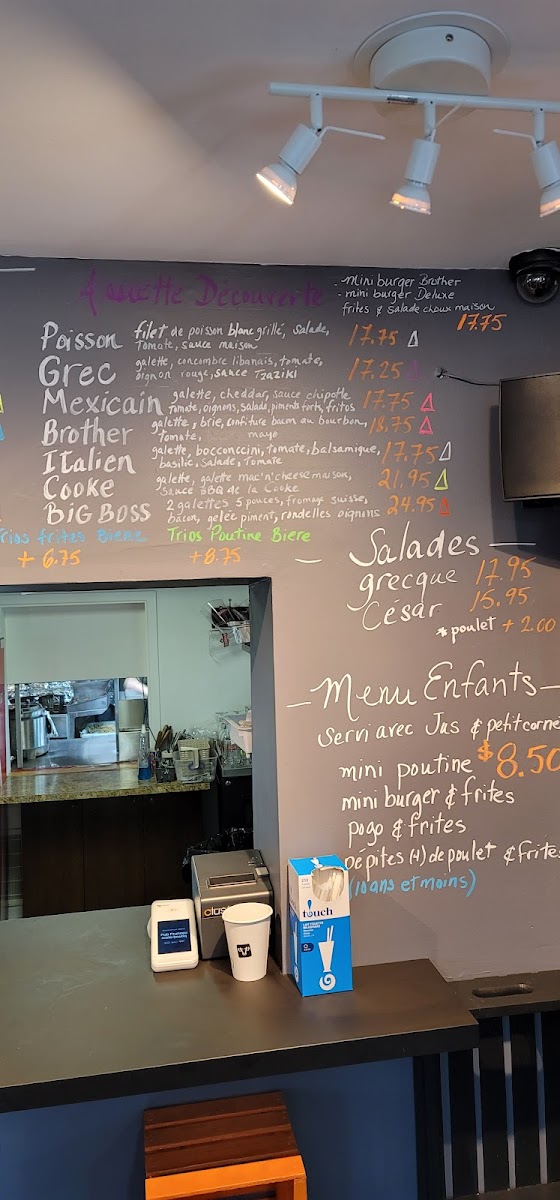 Assiette Découverte
- mini burger Brother
- mini burger Deluxe
frites & salade choux maison
17.75
Poisson filet de poisson blanc grillé, salade, 17.75
tomate, sauce maison
Grec galette, concombre libanais, tomate, 17.25
oignon rouge, sauce Tzaziki
Mexicain galette, cheddar, sauce chipotle 17.75
tomate, oignons, salade, piments forts, fritos
Brother galette, brie, confiture bacon au bourbon, 18.75
tomate, mayo
Italien galette, bocconccini, tomate, balsamique, 17.75
basilic, salade, tomate
Cooke galette, galette mac'n'cheese maison, 21.95
sauce BBQ de la Cooke
BIG BOSS 2 galettes 5 pouces, fromage suisse, 24.95
bacon, gelée piment, rondelles oignons
Trios frites Biere Trios Poutine Biere
+ 6.75 +8.75
Salades
grecque 17.95
César 15.95
* poulet + 2.00
Menu Enfants
Servi avec Jus & petit corne
$8.50
mini poutine
mini burger & frites
pogo & frites
pépites (4) de poulet & frites
(10 ans et moins)
touch